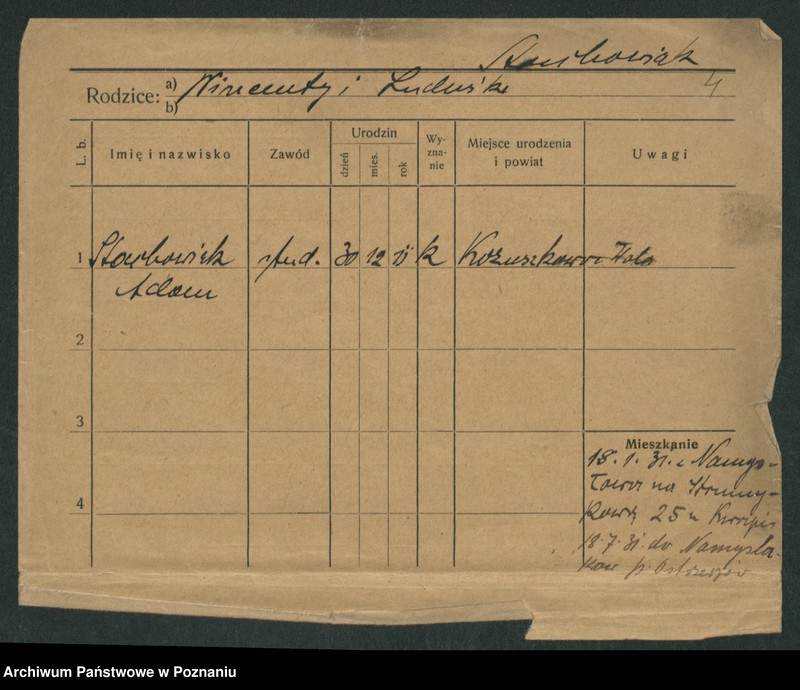 Stachowiak
Rodzice: a) Wincenty i Ludwika 4
b)
L. b. Imię i nazwisko Zawód Urodzin dzień mies. rok Wy-zna-nie Miejsce urodzenia i powiat Uwagi
1 Stachowiak stud. 30 12 11 k Kożuszkowo Wola
Adam
2
3
Mieszkanie
18.1.31. z Namys-
łowa na Strumy-
4
kową 25 u
18.7.31 do Namysła-
ków p. Ostrzeszów
Archiwum Państwowe w Poznaniu